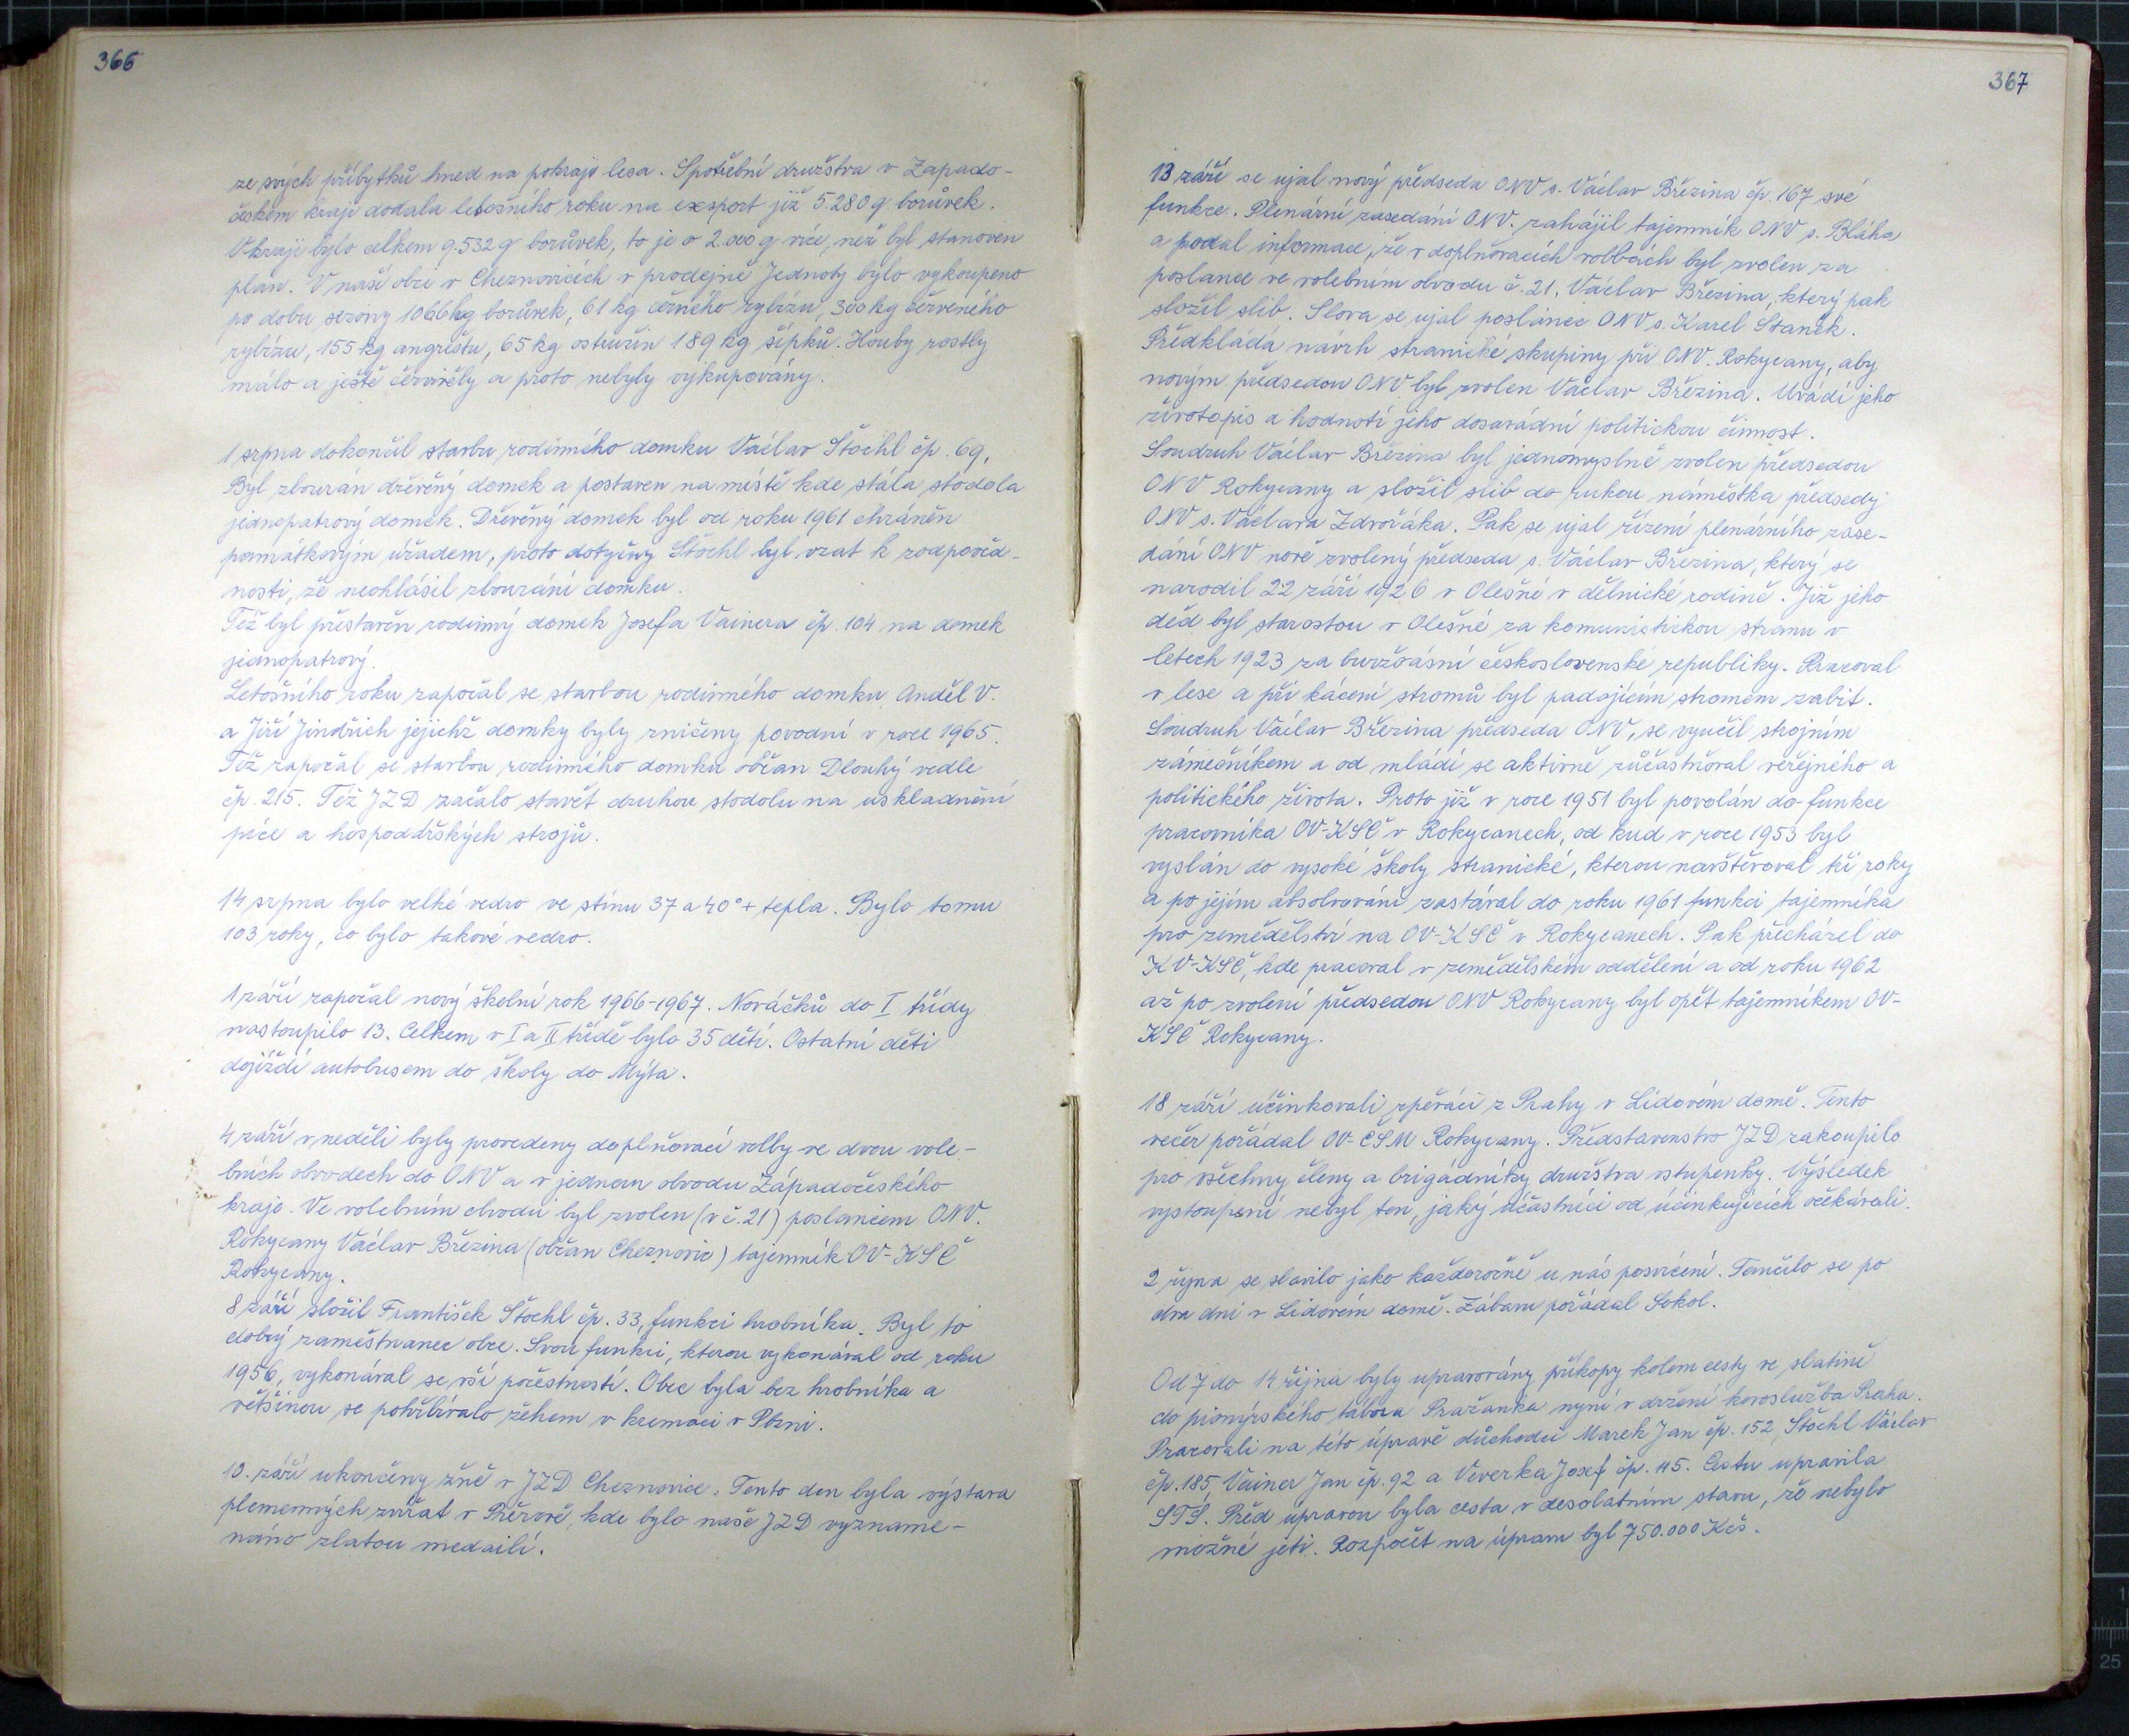 366
ze svých příbytků hned na pokraji lesa. Spotřební družstva v Západo-
českém kraji dodala letošního roku na exsport již 5.280 q borůvek.
V kraji bylo celkem 9.532 q borůvek, to je o 2.000 q více, než byl stanoven
plán. V naší obci v Cheznovicích v prodejně Jednoty bylo vykoupeno
po dobu sezony 1066 kg borůvek, 61 kg černého rybízu, 300 kg červeného
rybízu, 155 kg angreštu, 65 kg ostružin 189 kg šípků. Houby rostly
málo a ještě červivěly a proto nebyly vykupovány.
1 srpna dokončil stavbu rodinného domku Václav Štochl čp. 69.
Byl zbourán dřevěný domek a postaven na místě kde stála stodola
jednopatrový domek. Dřevěný domek byl od roku 1961 chráněn
památkovým úřadem, proto dotyčný Štochl byl vzat k zodpověd-
nosti, že neohlásil zbourání domku.
Též byl přestavěn rodinný domek Josefa Vainera čp. 104 na domek
jednopatrový.
Letošního roku započal se stavbou rodinného domku Anděl V.
a Jiří Jindřich jejichž domky byly zničeny povodní v roce 1965.
Též započal se stavbou rodinného domku občan Dlouhý vedle
čp. 215. Též JZD začalo stavět druhou stodolu na uskladnění
píce a hospodářských strojů.
14 srpna bylo velké vedro ve stínu 37 a 40°+ tepla. Bylo tomu
103 roky, co bylo takové vedro.
1 září započal nový školní rok 1966-1967. Nováčků do I třídy
nastoupilo 13. Celkem v I a II třídě bylo 35 dětí. Ostatní děti
dojíždí autobusem do školy do Mýta.
4 září v neděli byly provedeny doplňovací volby ve dvou vole-
bních obvodech do ONV a v jednom obvodu Západočeského
kraje. Ve volebním obvodu byl zvolen (v č. 21) poslancem ONV.
Rokycany Václav Březina (občan Cheznovic) tajemník OV-KSČ
Rokycany.
8 září složil František Štochl čp. 33, funkci hrobníka. Byl to
dobrý zaměstnanec obce. Svou funkci, kterou vykonával od roku
1956, vykonával se vší počestností. Obec byla bez hrobníka a
většinou se pohřbívalo žehem v kremaci v Plzni.
10. září ukončeny žně v JZD Cheznovice. Tento den byla výstava
plemenných zvířat v Přerově, kde bylo naše JZD vyzname-
náno zlatou medailí.
367
13 září se ujal nový předseda ONV s. Václav Březina čp. 167 své
funkce. Plenární zasedání ONV. zahájil tajemník ONV s. Bláha
a podal informace, že v doplňovacích volbách byl zvolen za
poslance ve volebním obvodu č. 21, Václav Březina, který pak
složil slib. Slova se ujal poslanec ONV s. Karel Staněk.
Předkládá návrh stranické skupiny při ONV. Rokycany, aby
novým předsedou ONV byl zvolen Václav Březina. Uvádí jeho
životopis a hodnotí jeho dosavádní politickou činnost.
Soudruh Václav Březina byl jednomyslně zvolen předsedou
ONV Rokycany a složil slib do rukou náměstka předsedy
ONV s. Václava Zdvořáka. Pak se ujal řízení plenárního zase-
dání ONV nově zvolený předseda s. Václav Březina, který se
narodil 22 září 1926 v Olešné v dělnické rodině. Již jeho
děd byl starostou v Olešné za komunistickou stranu v
letech 1923 za buržoásní československé republiky. Pracoval
v lese a při kácení stromů byl padajícím stromem zabit.
Soudruh Václav Březina předseda ONV, se vyučil strojním
zámečníkem a od mládí se aktivně zůčastňoval veřejného a
politického života. Proto již v roce 1951 byl povolán do funkce
pracovníka OV-KSČ v Rokycanech, od kud v roce 1953 byl
vyslán do vysoké školy stranické, kterou navštěvoval tři roky
a po jejím absolvování zastával do roku 1961 funkci tajemníka
pro zemědělství na OV-KSČ v Rokycanech. Pak přecházel do
KV-KSČ, kde pracoval v zemědělském oddělení a od roku 1962
až po zvolení předsedou ONV Rokycany byl opět tajemníkem OV-
KSČ Rokycany.
18 září účinkovali zpěváci z Prahy v Lidovém domě. Tento
večer pořádal OV-ČSM Rokycany. Představenstvo JZD zakoupilo
pro všechny členy a brigádníky družstva vstupenky. Výsledek
vystoupení nebyl ten, jaký účastníci od účinkujících očekávali.
2 října se slavilo jako každoročně u nás posvícení. Tančilo se po
dva dni v Lidovém domě. Zábavu pořádal Sokol.
Od 7 do 14 října byly upravovány příkopy kolem cesty ve slatině
do pionýrského tábora Pražanka nyní v držení kovoslužba Praha.
Pracovali na této úpravě důchodci Marek Jan čp. 152, Štochl Václav
čp. 185, Vainer Jan čp. 92 a Veverka Josef čp. 115. Cestu upravila
STS. Před úpravou byla cesta v desolatním stavu, že nebylo
možné jeti. Rozpočet na úpravu byl 750.000 Kčs.
25